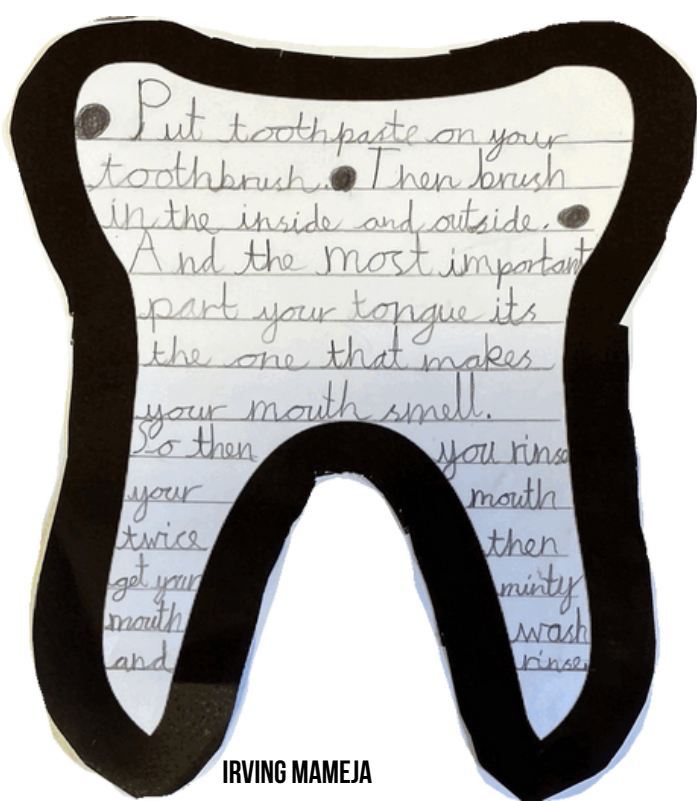 ● Put toothpaste on your
toothbrush. ● Then brush
in the inside and outside. ●
And the most important
part your tongue its
the one that makes
your mouth smell.
So then you rinse
your mouth
twice then
get your minty
mouth wash
and rinse
IRVING MAMEJA